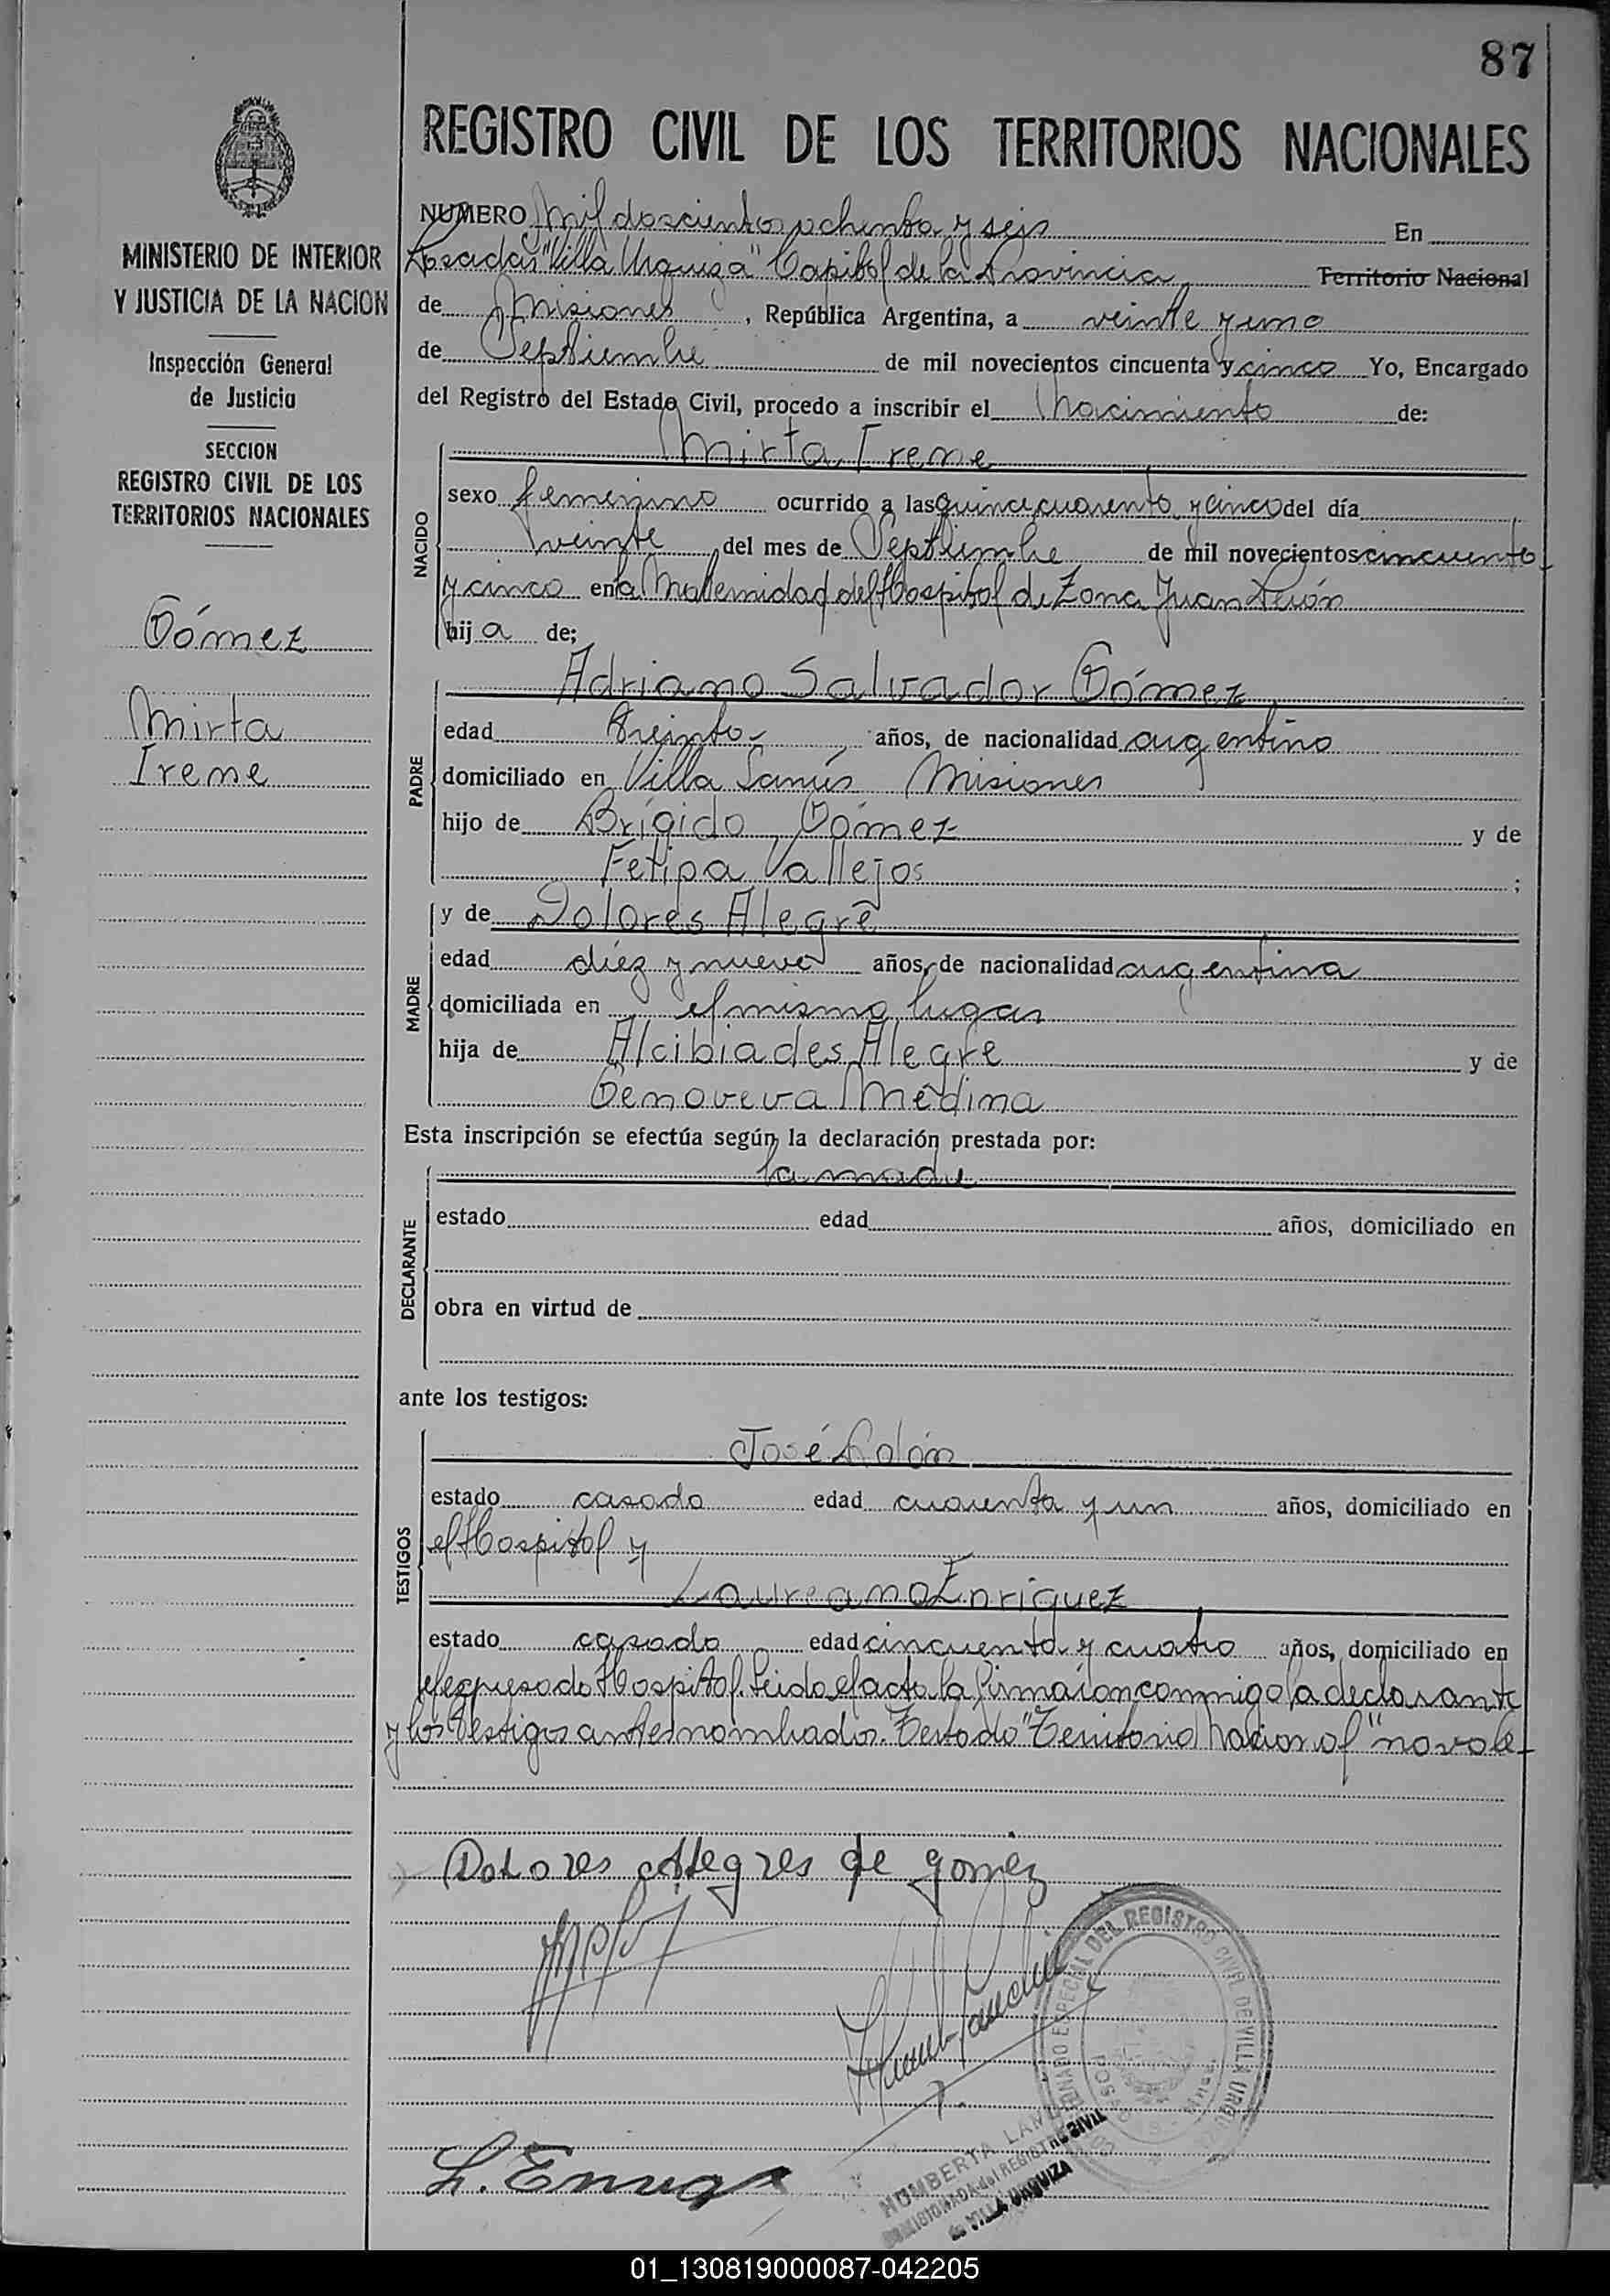 87
REGISTRO CIVIL DE LOS TERRITORIOS NACIONALES
MINISTERIO DE INTERIOR
Y JUSTICIA DE LA NACION
Inspección General
de Justicia
SECCION
REGISTRO CIVIL DE LOS
TERRITORIOS NACIONALES
Gómez
Mirta
Irene
NUMERO Mil doscientos ochenta y seis En
Posadas "Villa Urquiza" Capital de la Provincia Territorio Nacional
de Misiones, República Argentina, a veinte y uno
de Septiembre de mil novecientos cincuenta y cinco Yo, Encargado
del Registro del Estado Civil, procedo a inscribir el Nacimiento de:
NACIDO
Mirta Irene
sexo femenino ocurrido a las quince, cuarenta y cinco del día
veinte del mes de Septiembre de mil novecientos cincuenta
y cinco en la Maternidad del Hospital de Zona Juan
hija de;
PADRE
Adriano Salvador Gómez
edad treinta años, de nacionalidad argentino
domiciliado en Villa Lanús Misiones
hijo de Brígido Gómez y de
Felipa Vallejos ;
MADRE
y de Dolores Alegre
edad diez y nueve años, de nacionalidad argentina
domiciliada en el mismo lugar
hija de Alcibiades Alegre y de
Genoveva Medina
Esta inscripción se efectúa según la declaración prestada por:
DECLARANTE
la madre
estado edad años, domiciliado en
obra en virtud de
ante los testigos:
TESTIGOS
José
estado casado edad cuarenta y un años, domiciliado en
el Hospital y
Laureano Enriquez
estado casado edad cincuenta y cuatro años, domiciliado en
el expresado Hospital. Leido el acta la firmaron conmigo la declarante
y los testigos antes nombrados. Testado "Territorio Nacional" no vale-
Dolores Alegres de gomez
DEL REGISTRO CIVIL DE VILLA URQUIZA
HUMBERTA
del REGISTRO CIVIL
de VILLA URQUIZA
01_130819000087-042205